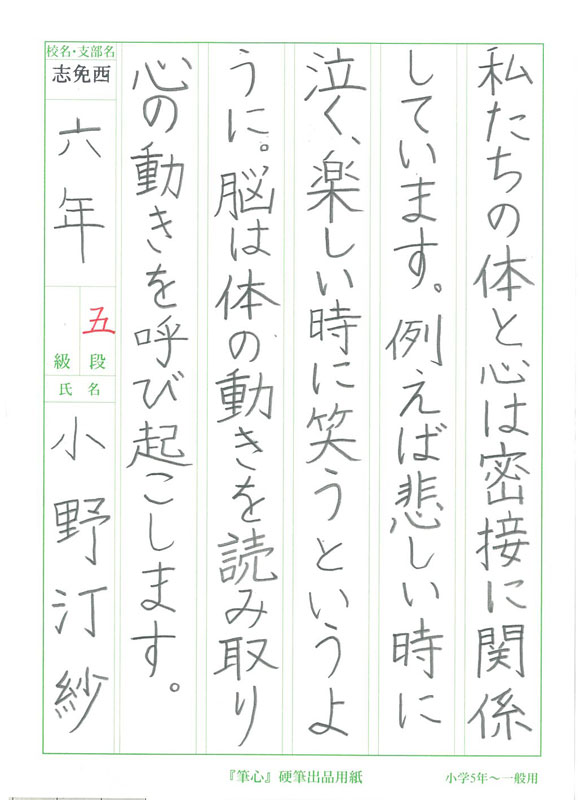 私たちの体と心は密接に関係
しています。例えば悲しい時に
泣く、楽しい時に笑うというよ
うに。脳は体の動きを読み取り
心の動きを呼び起こします。
校名・支部名
志免西
六年
五段
級
氏名
小野汀紗
『筆心』硬筆出品用紙
小学5年〜一般用